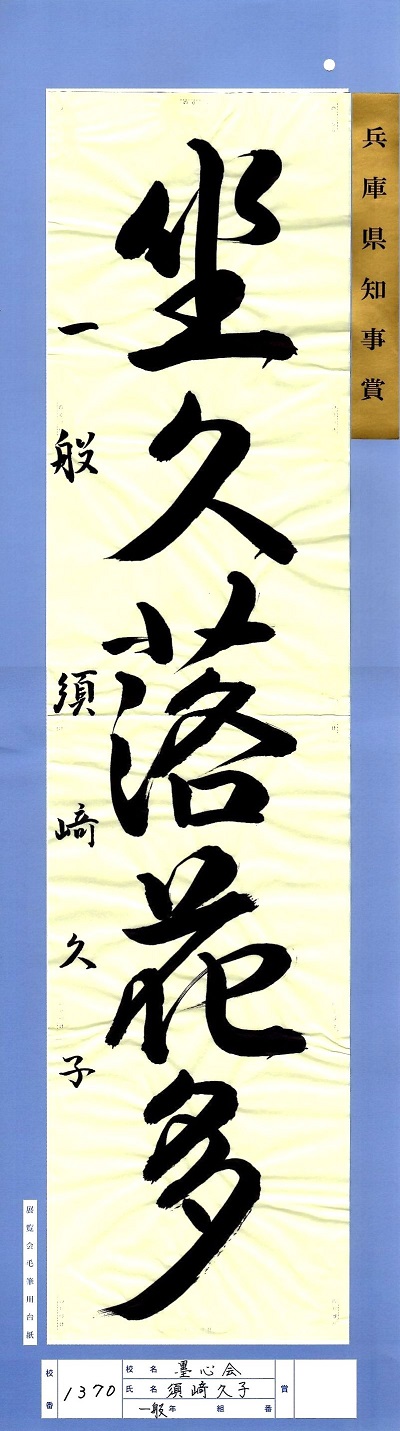 兵庫県知事賞
坐久落花多
一般 須﨑久子
展覧会毛筆用台紙
校番 1370
校名 墨心会
氏名 須﨑久子
一般年 組 番
賞